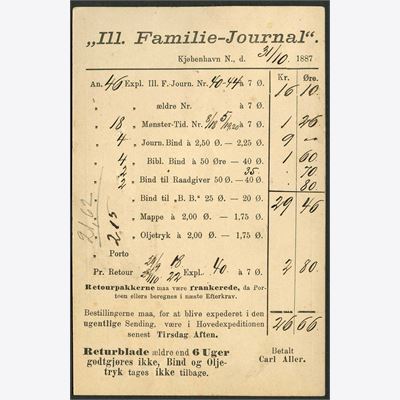 „Ill. Familie-Journal“.
Kjøbenhavn N., d. 31/10 1887
Kr. Øre.
An. 46 Expl. Ill. F.-Journ. Nr. 40-44 à 7 Ø. 16 10
„ „ ældre Nr. à 7 Ø.
„ 18 „ Mønster-Tid. Nr. à 7 Ø. 1 26
„ 4 „ Journ. Bind à 2,50 Ø. — 2,25 Ø. 9 —
„ 4 „ Bibl. Bind à 50 Øre — 40 Ø. 1 60
„ 2 „ Bind til Raadgiver 50 Ø. — 40 Ø. 35 70
2 80
„ „ Bind til „B. B.“ 25 Ø. — 20 Ø. 29 46
„ „ Mappe à 2,00 Ø. — 1,75 Ø.
„ „ Oljetryk à 2,00 Ø. — 1,75 Ø.
2,15
Porto
Pr. Retour 18 22 Expl. 40 à 7 Ø. 2 80
Retourpakkerne maa være frankerede, da Por-
toen ellers beregnes i næste Efterkrav.
Bestillingerne maa, for at blive expederet i den
ugentlige Sending, være i Hovedexpeditionen
senest Tirsdag Aften.
26 66
Returblade ældre end 6 Uger
godtgjøres ikke, Bind og Olje-
tryk tages ikke tilbage.
Betalt
Carl Aller.